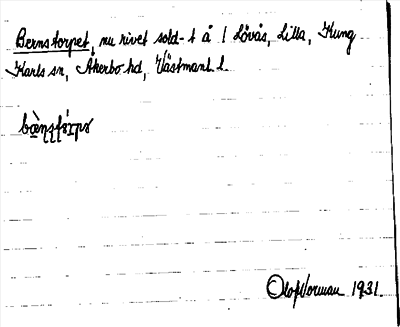 Bernstorpet, nu rivet sold-t å 1 Lövås, Lilla, Kung
Karls sn, Åkerbo hd, Västmanl. l.
Olof Norman 1931.